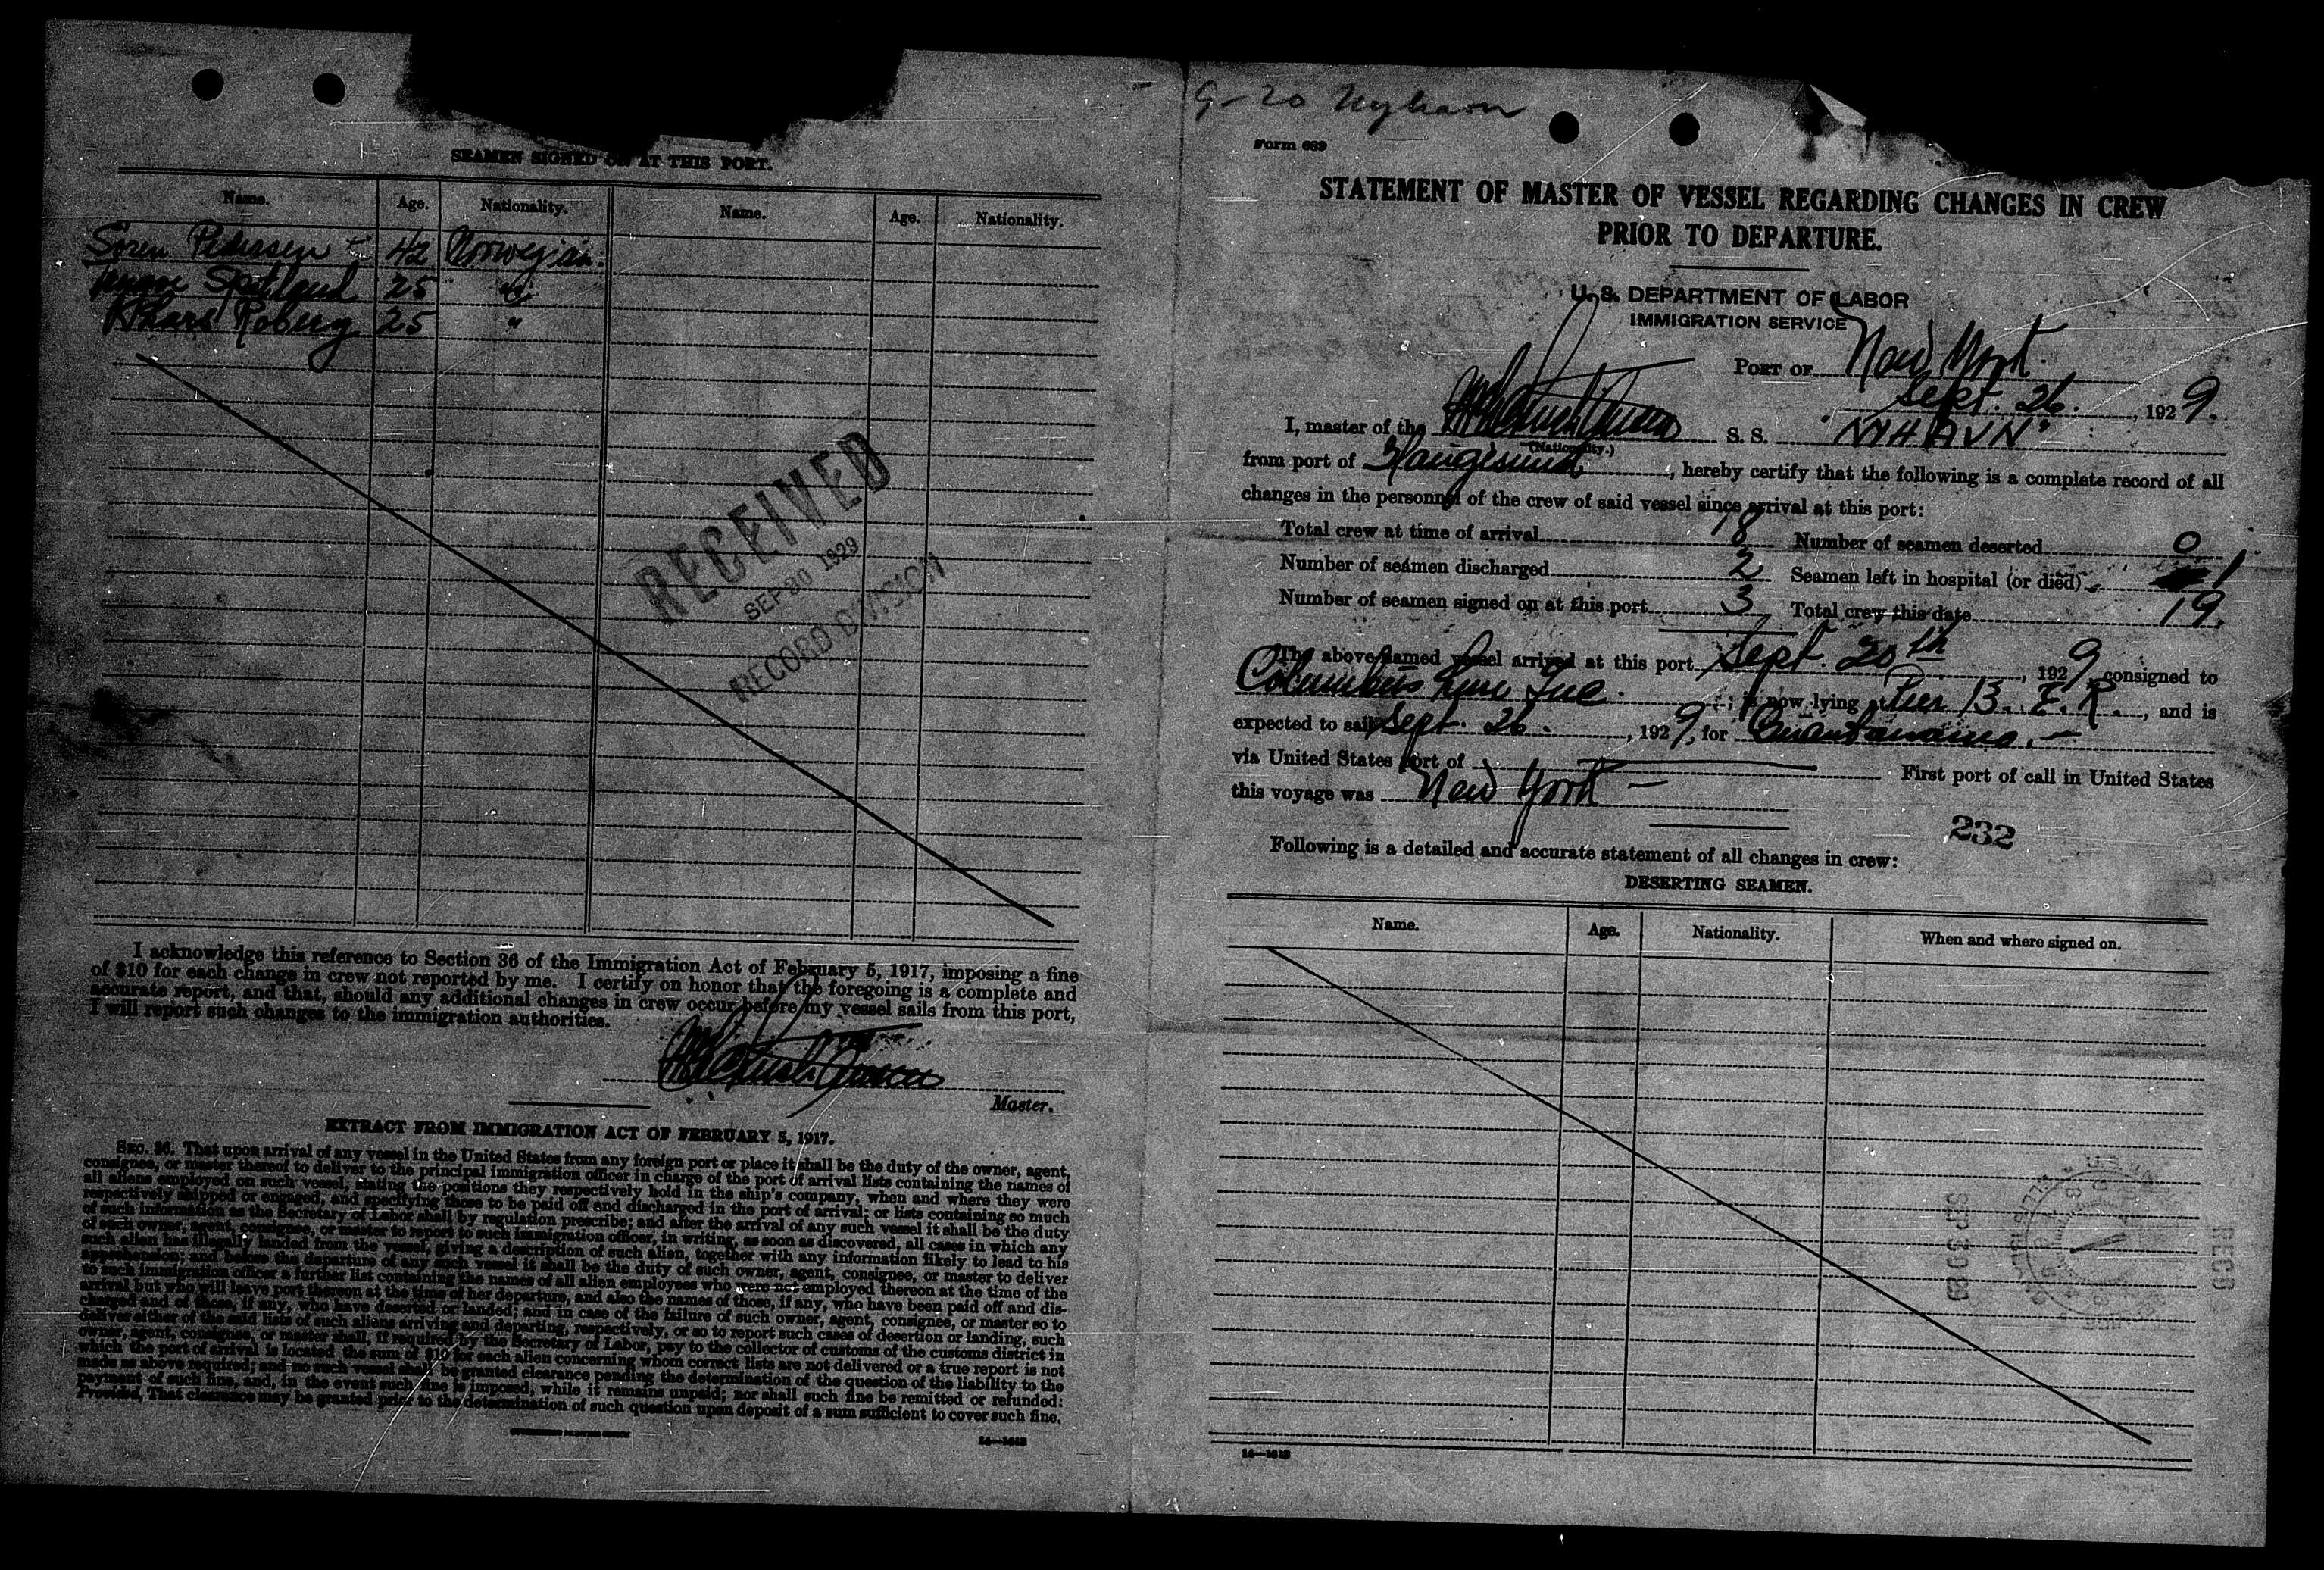 SEAMEN SIGNED ON AT THIS PORT.
Name. Age. Nationality. Name. Age. Nationality.
Soren Pedersen 42 Norwegian.
25 "
Roberg 25 "
RECEIVED
SEP 30 1929
RECORD DIVISION
I acknowledge this reference to Section 36 of the Immigration Act of February 5, 1917, imposing a fine
of $10 for each change in crew not reported by me. I certify on honor that the foregoing is a complete and
accurate report, and that, should any additional changes in crew occur before my vessel sails from this port,
I will report such changes to the immigration authorities.
Master.
EXTRACT FROM IMMIGRATION ACT OF FEBRUARY 5, 1917.
SEC. 36. That upon arrival of any vessel in the United States from any foreign port or place it shall be the duty of the owner, agent,
consignee, or master thereof to deliver to the principal immigration officer in charge of the port of arrival lists containing the names of
all aliens employed on such vessel, stating the positions they respectively hold in the ship's company, when and where they were
respectively shipped or engaged, and specifying those to be paid off and discharged in the port of arrival; or lists containing so much
of such information as the Secretary of Labor shall by regulation prescribe; and after the arrival of any such vessel it shall be the duty
of such owner, agent, consignee, or master to report to such immigration officer, in writing, as soon as discovered, all cases in which any
such alien has illegally landed from the vessel, giving a description of such alien, together with any information likely to lead to his
apprehension; and before the departure of any such vessel it shall be the duty of such owner, agent, consignee, or master to deliver
to such immigration officer a further list containing the names of all alien employees who were not employed thereon at the time of the
arrival but who will leave port thereon at the time of her departure, and also the names of those, if any, who have been paid off and dis-
charged and of those, if any, who have deserted or landed; and in case of the failure of such owner, agent, consignee, or master so to
deliver either of the said lists of such aliens arriving and departing, respectively, or so to report such cases of desertion or landing, such
owner, agent, consignee, or master shall, if required by the Secretary of Labor, pay to the collector of customs of the customs district in
which the port of arrival is located the sum of $10 for each alien concerning whom correct lists are not delivered or a true report is not
made as above required; and no such vessel shall be granted clearance pending the determination of the question of the liability to the
payment of such fine, and, in the event such fine is imposed, while it remains unpaid; nor shall such fine be remitted or refunded:
Provided, That clearance may be granted prior to the determination of such question upon deposit of a sum sufficient to cover such fine.
GOVERNMENT PRINTING OFFICE
14—1613
9-20 Nyhavn
Form 689
STATEMENT OF MASTER OF VESSEL REGARDING CHANGES IN CREW
PRIOR TO DEPARTURE.
U. S. DEPARTMENT OF LABOR
IMMIGRATION SERVICE
PORT OF New York.
Sept. 26., 1929.
I, master of the S. S. "NYHAVN"
(Nationality.)
from port of Haugesund, hereby certify that the following is a complete record of all
changes in the personnel of the crew of said vessel since arrival at this port:
Total crew at time of arrival 18 Number of seamen deserted 0
Number of seamen discharged 2 Seamen left in hospital (or died) 1
Number of seamen signed on at this port 3 Total crew this date 19.
The above named vessel arrived at this port Sept. 20th, 1929, consigned to
Columbus Line Inc.; is now lying at Pier 13. E. R., and is
expected to sail Sept. 26., 1929, for Guantanamo. —
via United States port of — First port of call in United States
this voyage was New York —
232
Following is a detailed and accurate statement of all changes in crew:
DESERTING SEAMEN.
Name. Age. Nationality. When and where signed on.
SEP 30 29
RECD
14—1613